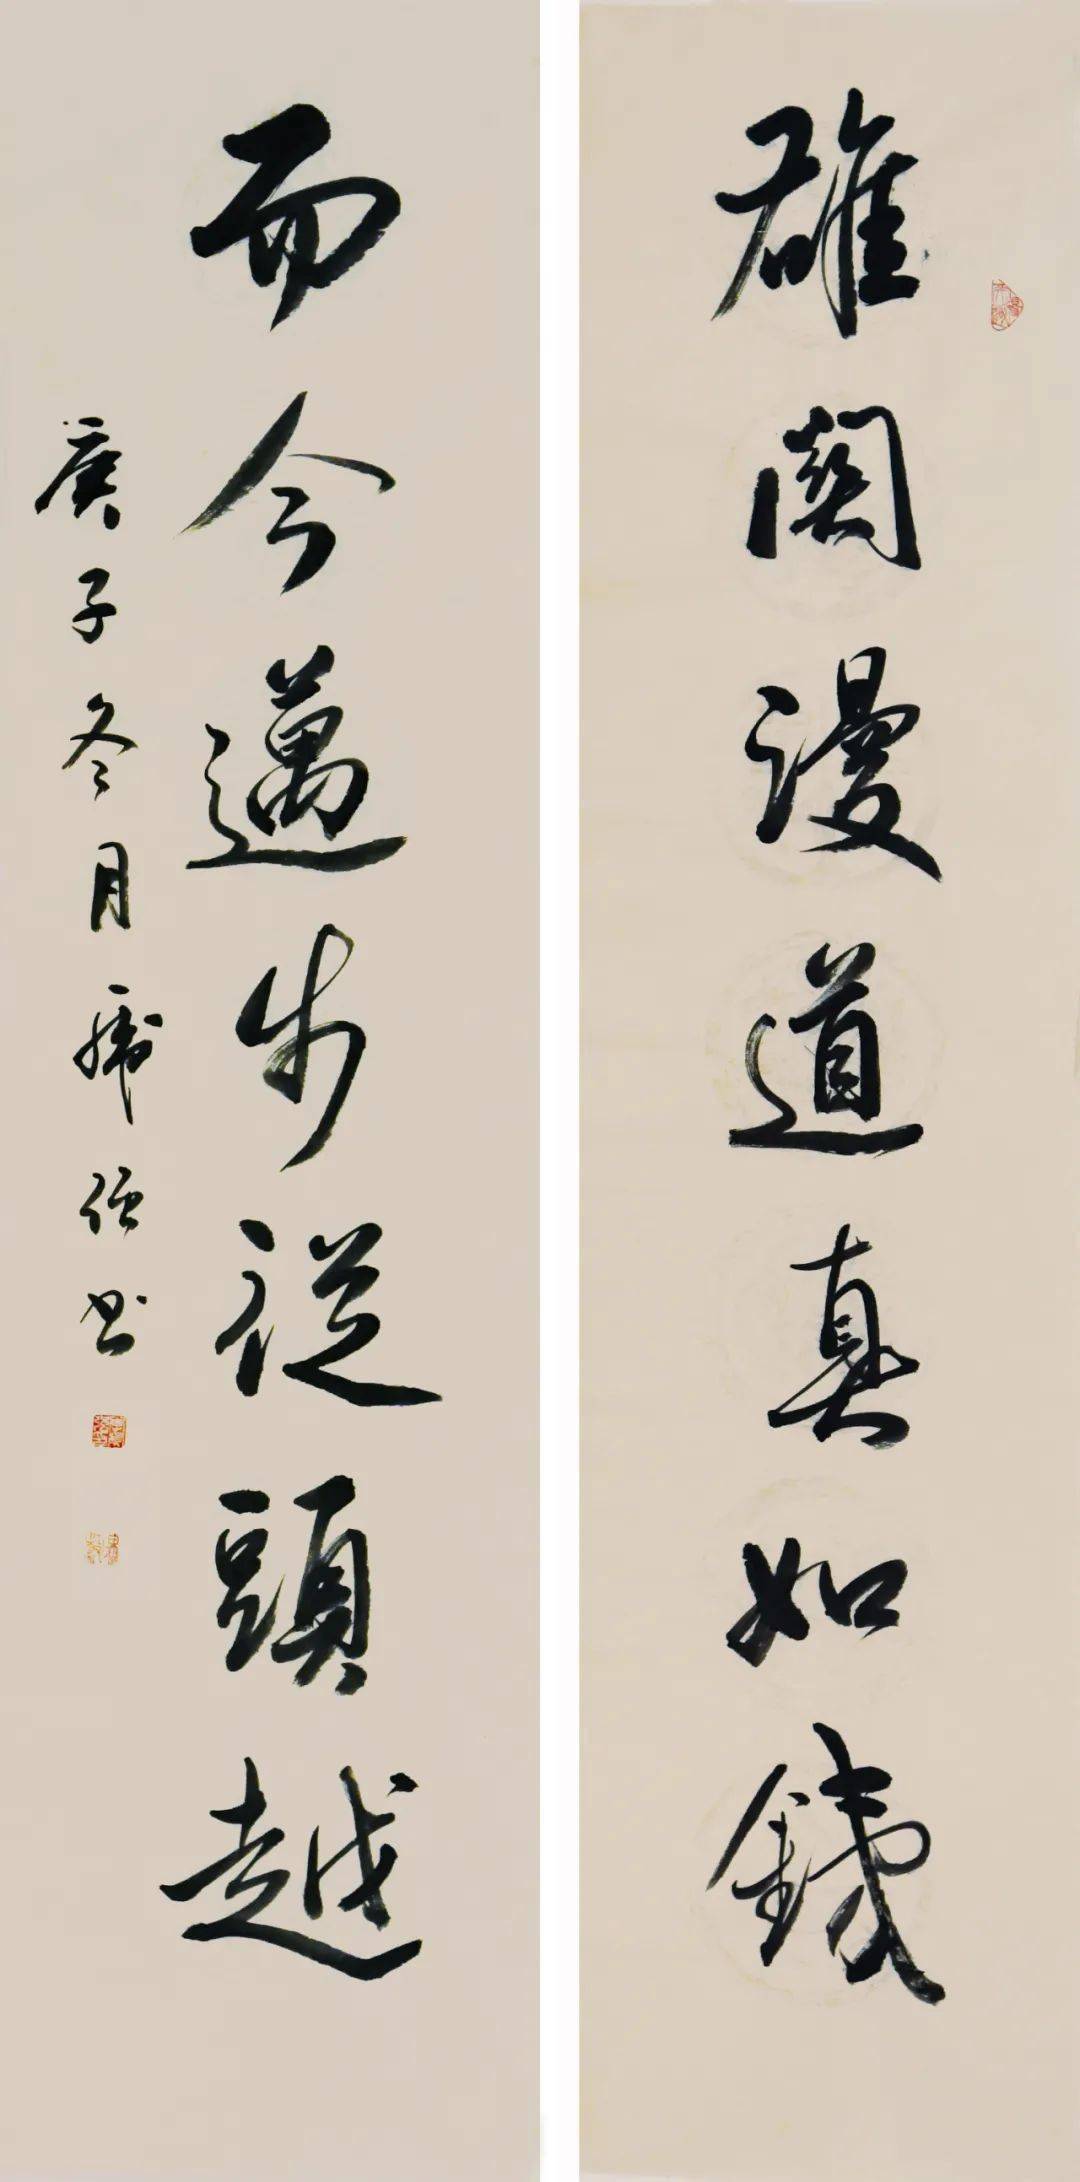 雄關漫道真如鐵
而今邁步從頭越
庚子冬月 书